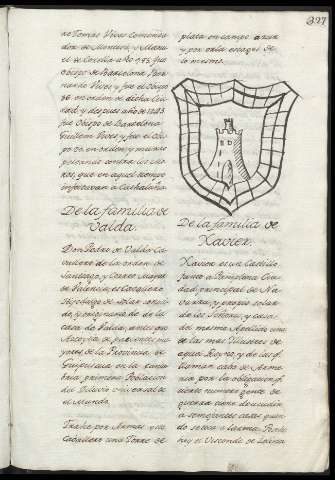 327
re Tomas Vives comenda
dor de Montesa y Manu
el de Corella año 983. fue
obispo de Barcelona Ber
nardo Vives y fue el obispo
en orden de dicha Ciu
dad y despues año de 1283
fue obispo de Barcelona
Guillem Vives y fue el obis
po en orden y murio
peleando contra los Mo
ros, que en aquel tiempo
infestavan a Cathaluña
De la familia de
Valda.
Don Pedro de Valda Ca
vallero de la orden de
Santiago, y Correo Mayor
de Valencia, es Cavallero
Hijodalgo de solar conosi
do, y originario de la
casa de Valda, antes que
Azcoytia de parientes ma
yores de la Provincia de
Guipuscoa en la Canta
bria, primera Poblacion
del Diluvio universal de
el Mundo.
Trahe por Armas este
Cavallero una Torre de
plata en campo azur
y por orla escaques de
lo mesmo.
De la familia de
Xavier.
Xavier es un Castillo
junto a Pamplona Ciu
dad principal de Na
varra, y propio solar
de los Señores, y casa
del mesmo Apellido una
de las mas Illustres de
aquel Reyno, y de las q.
llaman casa de Armeria
por la obligacion q.
tiente numero gente de
guerra como acudir
a semejantes casas quan
do se toca a larma. Posehe
hoy el Visconde de Zolina